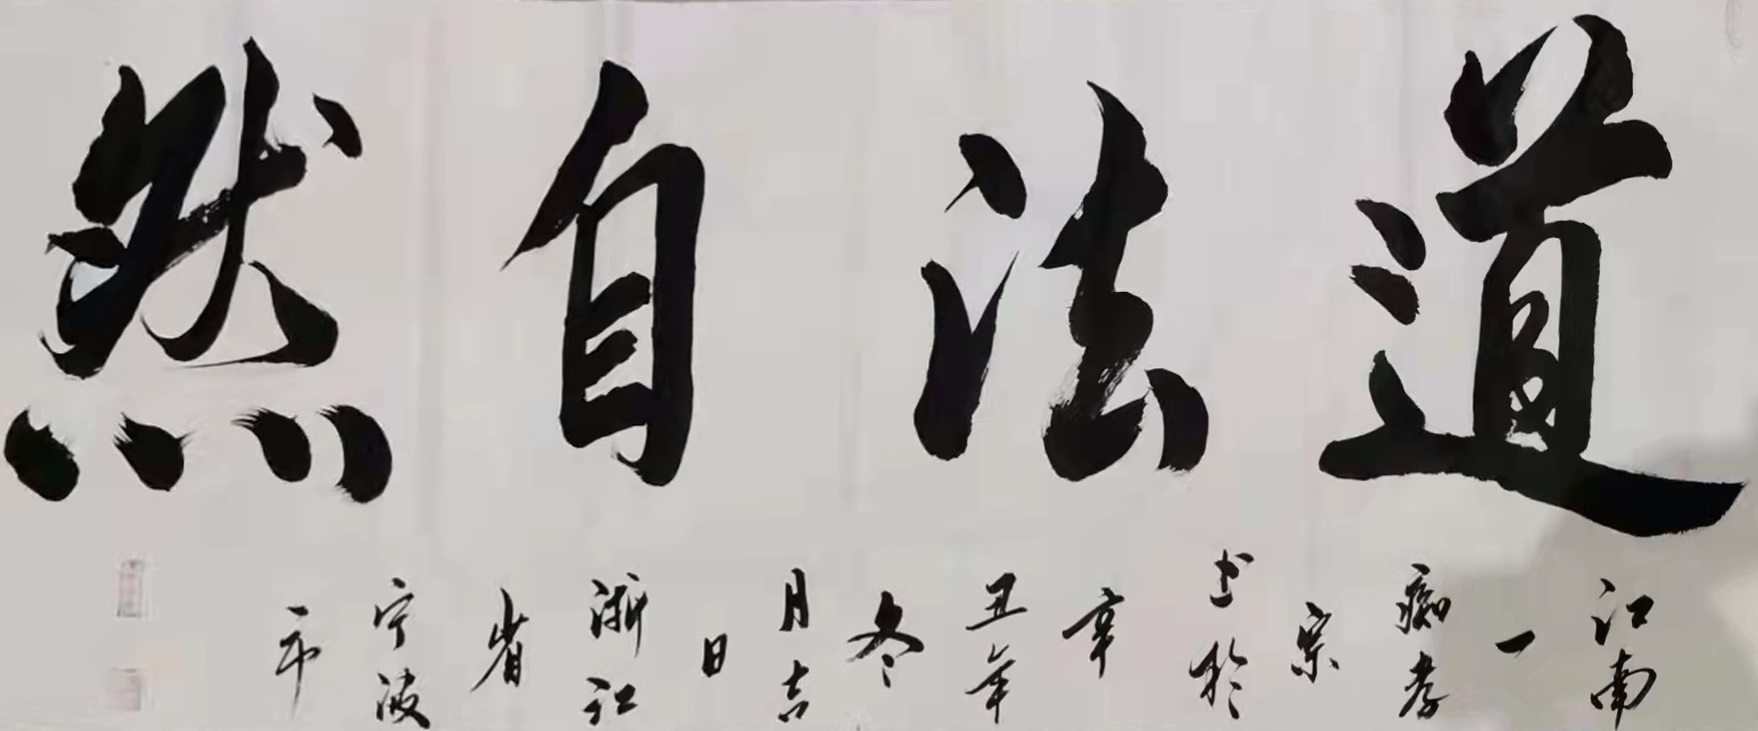 道法自然
江南一痴孝宗书於辛丑年冬月吉日浙江省宁波市